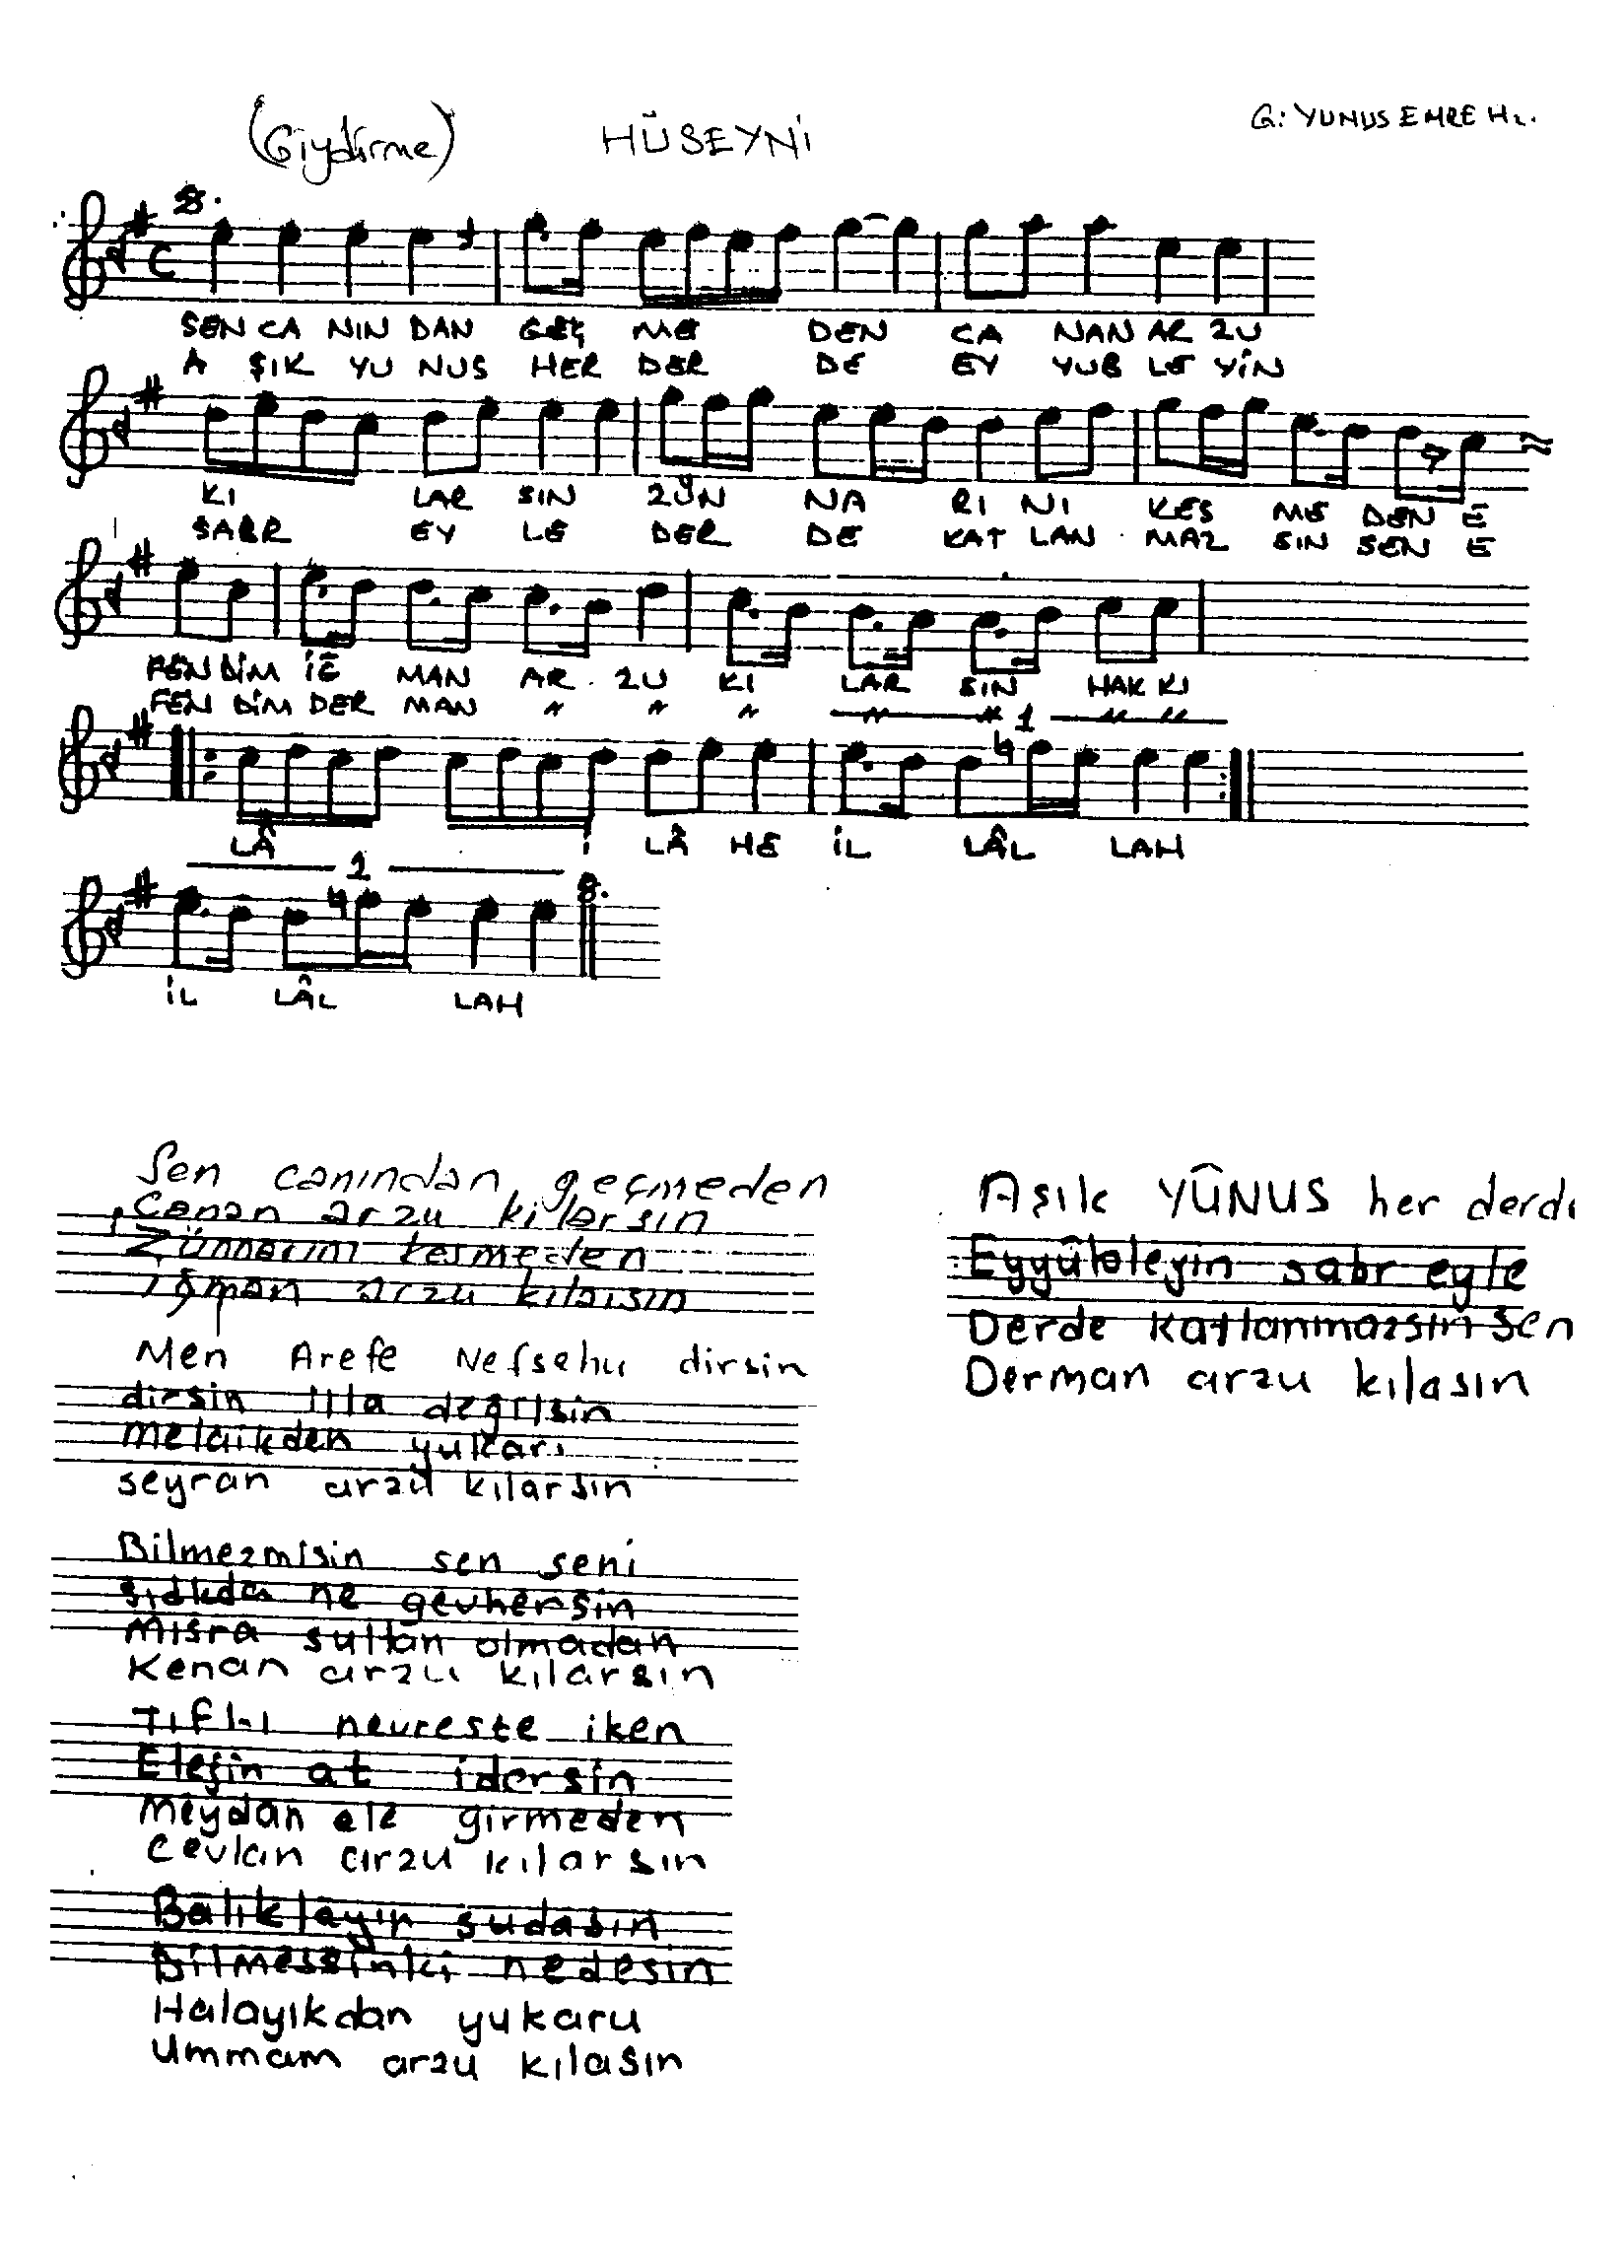 (Giydirme) HÜSEYNİ G: YUNUS EMRE Hz.
SEN CA NIN DAN GEÇ ME DEN CA NAN AR ZU
A ŞIK YU NUS HER DER DE EY YUB LE YİN
KI LAR SIN ZÜN NA RI NI KES ME DEN E
SABR EY LE DER DE KAT LAN MAZ SIN SEN E
FEN DİM İE MAN AR ZU KI LAR SIN HAK KI
FEN DİM DER MAN " " " " " 1 " "
LÂ İ LÂ HE İL LÂL LAH
1
İL LÂL LAH
Sen canından geçmeden
Canan arzu kılarsın
Zünnarını kesmeden
arzu kılarsın
Men Arefe Nefsehu dirsin
dirsin illa değilsin
melaikden yukarı
seyran arzu kılarsın
Bilmezmisin sen seni
sıdkda ne gevhersin
Mısra sultan olmadan
Kenan arzu kılarsın
Tıfl-ı nevreste iken
Eleğin at idersin
Meydan ele girmeden
Cevlan arzu kılarsın
Balıklayın sudasın
Bilmessinki nedesin
Halayıkdan yukaru
Ummam arzu kılasın
Aşık YÛNUS her derdi
Eyyûbleyin sabr eyle
Derde katlanmazsın sen
Derman arzu kılasın